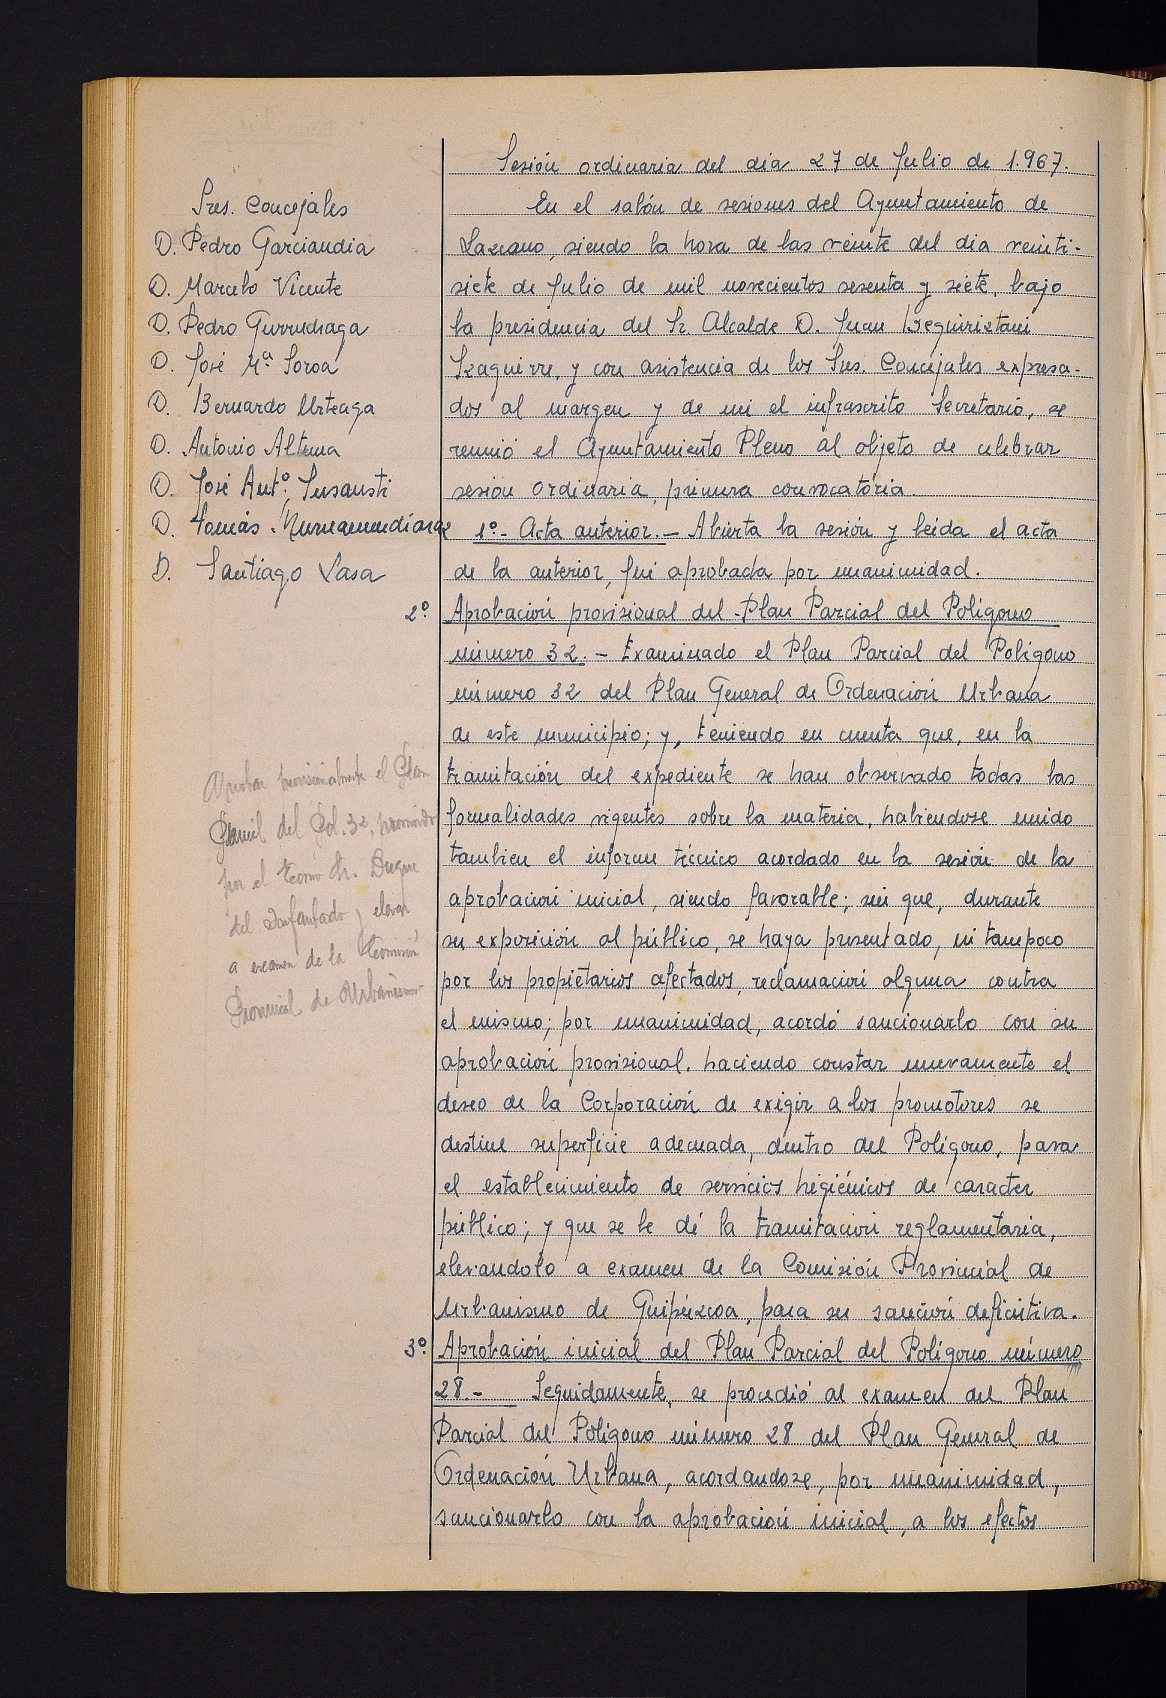 Sesión ordinaria del día 27 de Julio de 1.967.
Sres. Concejales
D. Pedro Garciandia
D. Marcelo Vicente
D. Pedro Gurruchaga
D. José Mª Soroa
D. Bernardo Urteaga
D. Antonio Altuna
D. José Antº. Insausti
D. Tomás Muruamendiaraz
D. Santiago Lasa
En el salón de sesiones del Ayuntamiento de
Lazcano, siendo la hora de las veinte del dia veinti-
siete de Julio de mil novecientos sesenta y siete, bajo
la presidencia del Sr. Alcalde D. Juan Beguiristain
Izaguirre, y con asistencia de los Sres. Concejales expresa-
dos al margen y de mi el infrascrito Secretario, se
reunió el Ayuntamiento Pleno al objeto de celebrar
sesión ordinaria, primera convocatoria.
1º.- Acta anterior.- Abierta la sesión y leida el acta
de la anterior, fué aprobada por unanimidad.
2º. Aprobación provisional del Plan Parcial del Polígono
número 32.- Examinado el Plan Parcial del Polígono
número 32 del Plan General de Ordenación Urbana
de este municipio; y, teniendo en cuenta que, en la
tramitación del expediente se han observado todas las
formalidades vigentes sobre la materia, habiendose unido
tambien el informe técnico acordado en la sesión de la
aprobación inicial, siendo favorable; sin que, durante
su exposición al público, se haya presentado, ni tampoco
por los propietarios afectados, reclamación alguna contra
el mismo; por unanimidad, acordó sancionarlo con su
aprobación provisional, haciendo constar nuevamente el
deseo de la Corporación de exigir a los promotores se
destine superficie adecuada, dentro del Polígono, para
el establecimiento de servicios higiénicos de caracter
público; y que se le dé la tramitación reglamentaria,
elevandolo a examen de la Comisión Provincial de
Urbanismo de Guipúzcoa, para su sanción definitiva.
Aprobar provisionalmente el Plan
Parcial del Pol. 32, promovido
por el Excmo Sr. Duque
del Infantado y elevar
a examen de la Comisión
Provincial de Urbanismo
3º. Aprobación inicial del Plan Parcial del Polígono número
28.- Seguidamente, se procedió al examen del Plan
Parcial del Polígono número 28 del Plan General de
Ordenación Urbana, acordandose, por unanimidad,
sancionarlo con la aprobación inicial, a los efectos